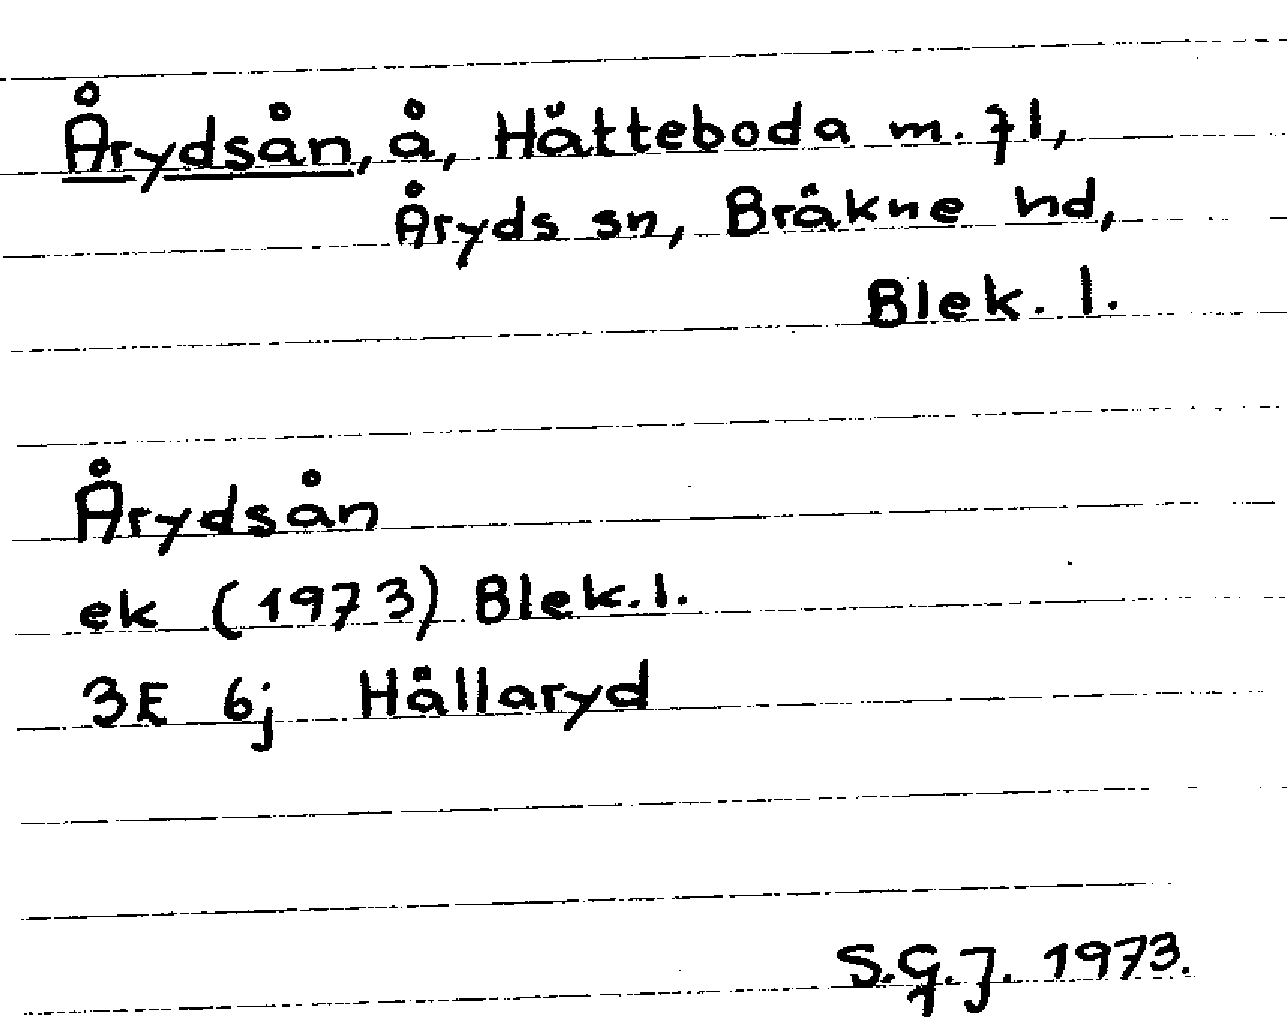 Årydsån, å, Hätteboda m. fl,
Åryds sn, Bräkne hd,
Blek. l.
Årydsån
ek (1973) Blek. l.
3E 6j Hällaryd
S.G.J. 1973.